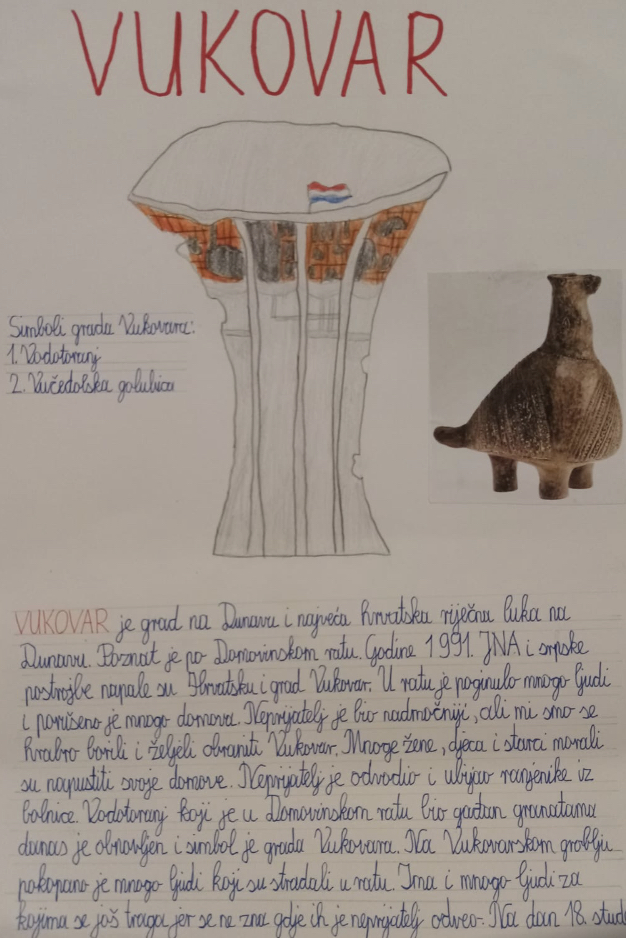 VUKOVAR
Simboli grada Vukovara:
1. Vodotoranj
2. Vučedolska golubica
VUKOVAR je grad na Dunavu i najveća hrvatska riječna luka na
Dunavu. Poznat je po Domovinskom ratu. Godine 1991. JNA i srpske
postrojbe napale su Hrvatsku i grad Vukovar. U ratu je poginulo mnogo ljudi
i porušeno je mnogo domova. Neprijatelj je bio nadmoćniji, ali mi smo se
hrabro borili i željeli obraniti Vukovar. Mnoge žene, djeca i starci morali
su napustiti svoje domove. Neprijatelj je odvodio i ubijao ranjenike iz
bolnice. Vodotoranj koji je u Domovinskom ratu bio gađan granatama
danas je obnovljen i simbol je grada Vukovara. Na Vukovarskom groblju
pokopano je mnogo ljudi koji su stradali u ratu. Ima i mnogo ljudi za
kojima se još traga jer se ne zna gdje ih je neprijatelj odveo. Na dan 18. stud